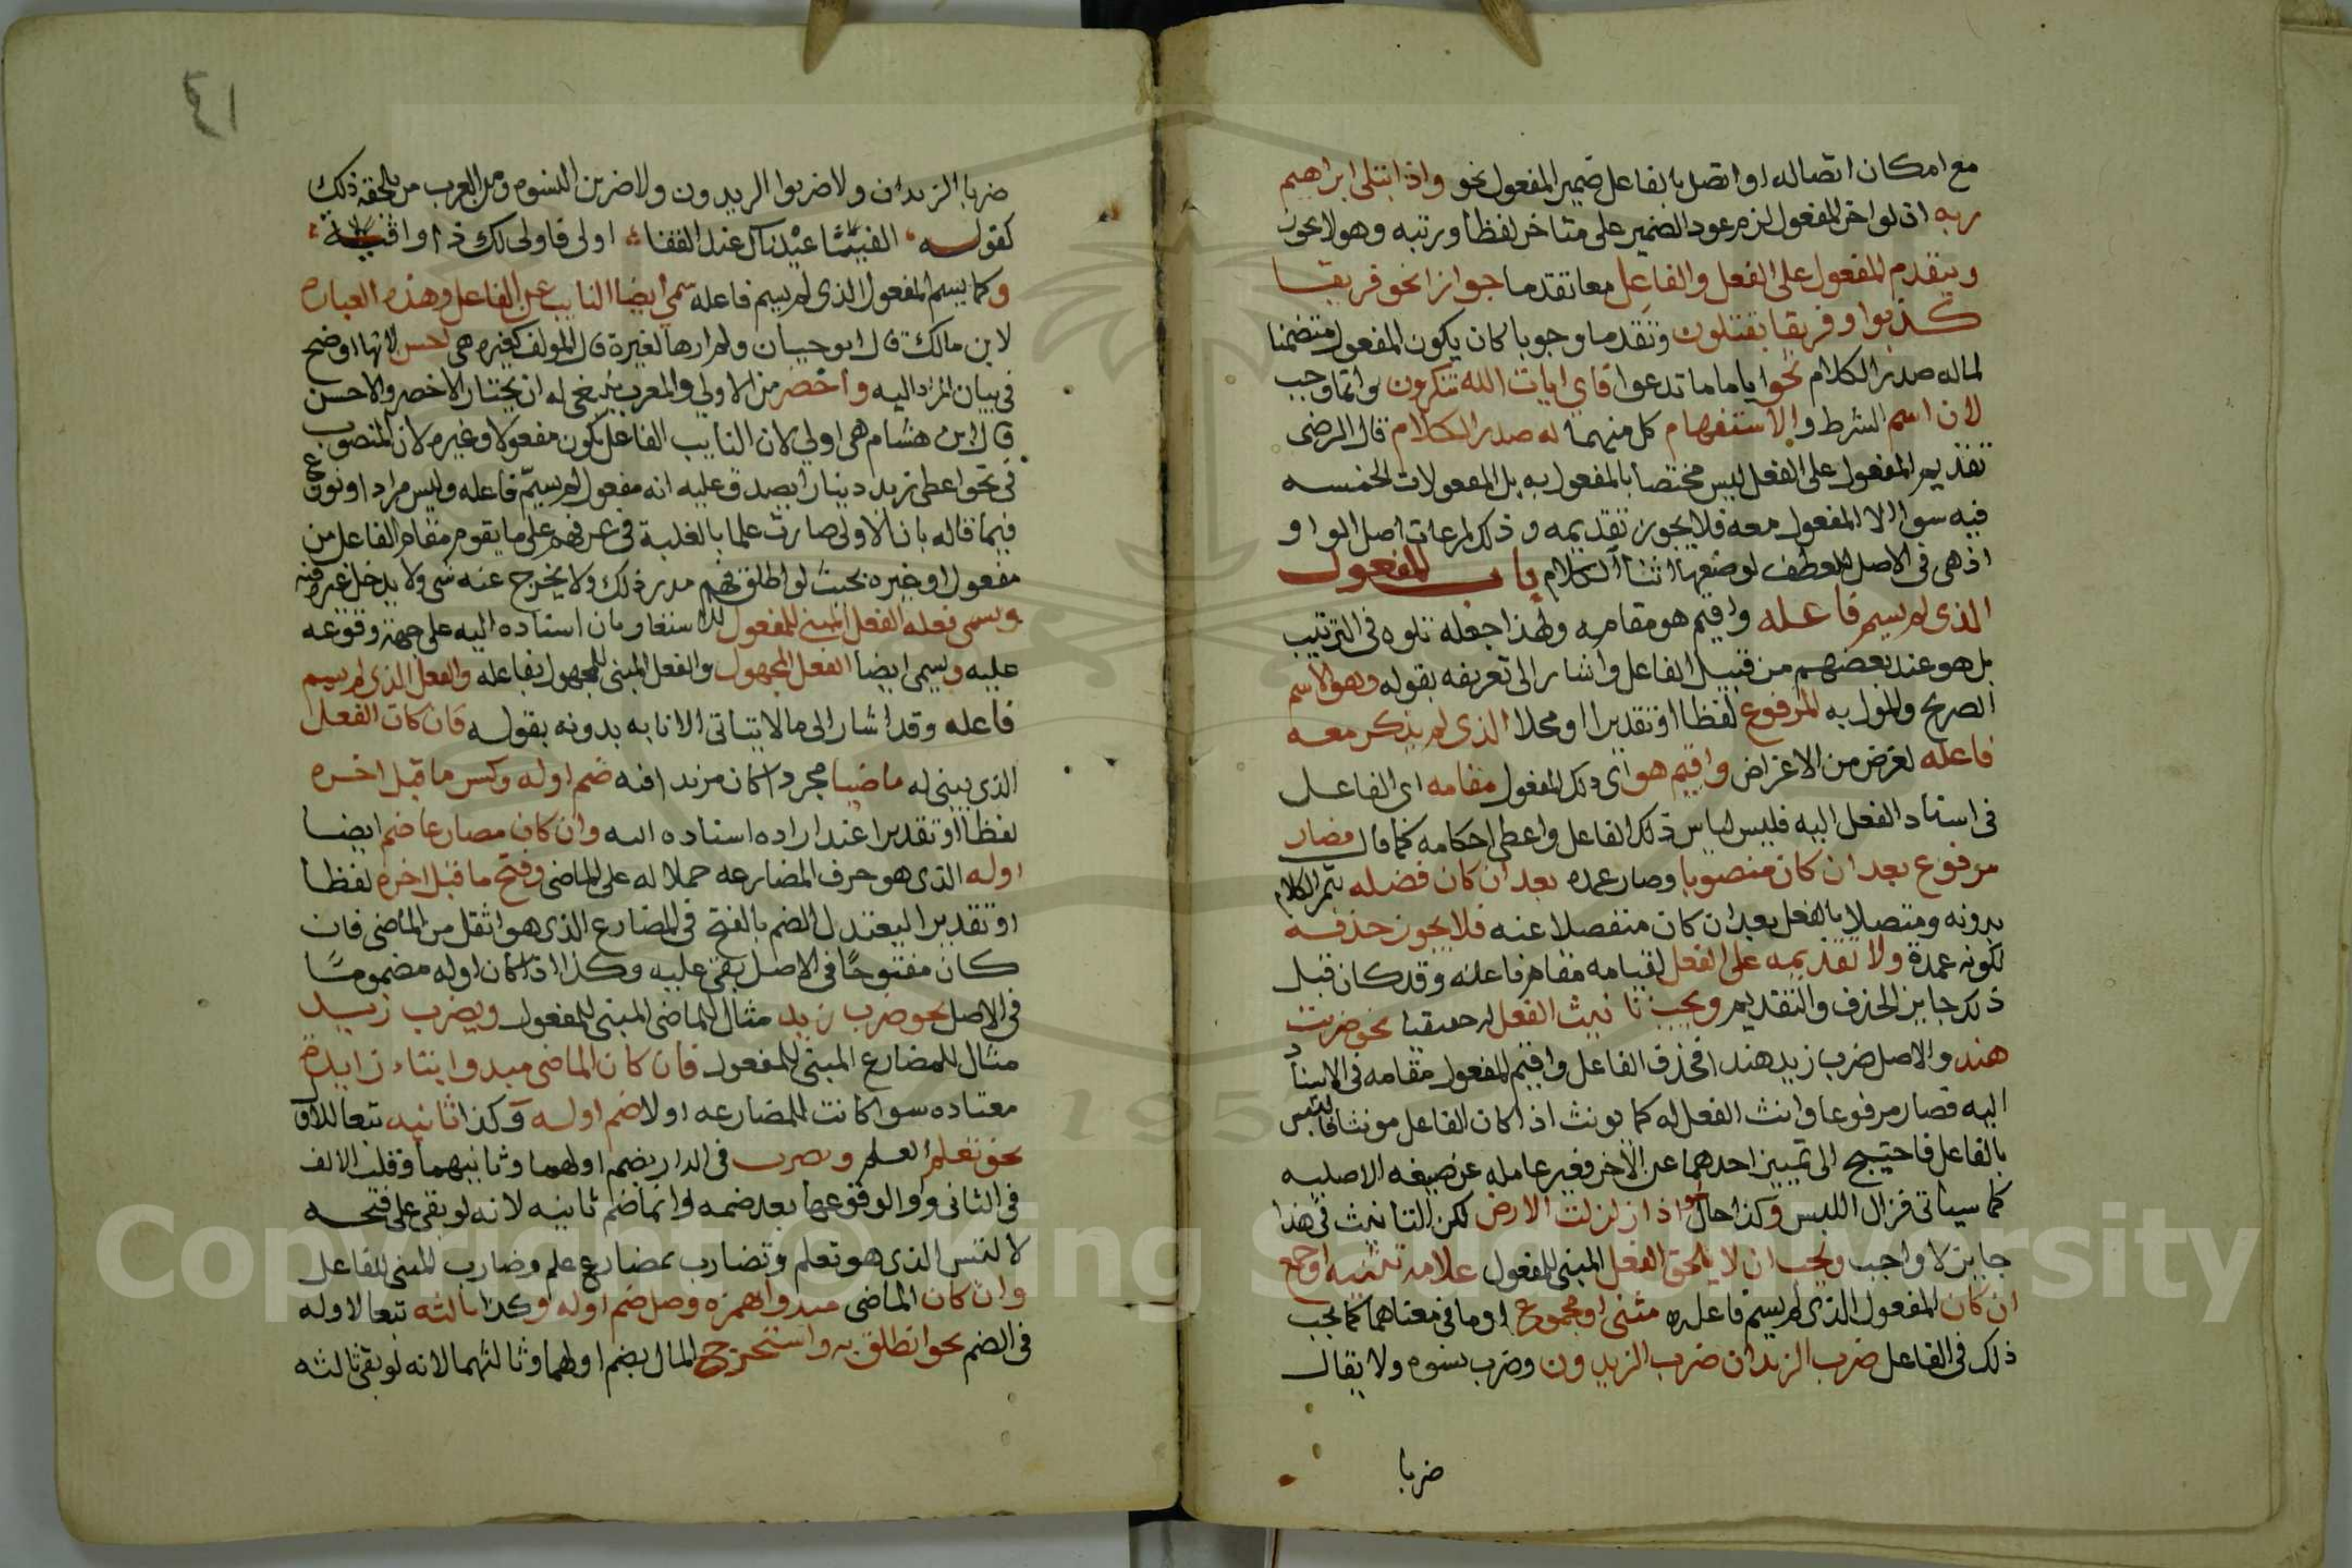 مع امكان اتصاله او اتصل بالفاعل ضمير المفعول نحو واذ ابتلى ابراهيم
ربه اذ لو اخر المفعول لزم عود الضمير على متاخر لفظا ورتبه وهو لا يجوز
ويتقدم المفعول على الفعل والفاعل معا تقدما جوازا نحو فريقا
كذبوا وفريقا يقتلون وتقدما وجوبا كان يكون المفعول متضمنا
لماله صدر الكلام نحو اياما ما تدعوا فاي ايات الله تنكرون وانما وجب
لان اسم الشرط والاستفهام كل منهما له صدر الكلام قال الرضى
تقديم المفعول على الفعل ليس مختصا بالمفعول به بل المفعولات الخمسه
فيه سوا الا المفعول معه فلا يجوز تقديمه وذلك لمراعات اصل الواو
اذ هى فى الاصل للعطف لوضعها اثنا الكلام باب المفعول
الذى لم يسم فاعله واقيم هو مقامه ولهذا جعله تلوه فى الترتيب
بل هو عند بعضهم من قبيل الفاعل واشار الى تعريفه بقوله وهو الاسم
الصريح والمول به المرفوع لفظا او تقديرا او محلا الذى لم يذكر معه
فاعله لغرض من الاغراض واقيم هو اى ذلك المفعول مقامه اى الفاعل
فى اسناد الفعل اليه فلبس لباس ذلك الفاعل واعطى احكامه كما قال فصار
مرفوع بعد ان كان منصوبا وصار عمده بعد ان كان فضله يتم الكلام
بدونه ومتصلا بالفعل بعد ان كان منفصلا عنه فلا يجوز حذفه
لكونه عمدة ولا تقديمه على الفعل لقيامه مقام فاعله وقد كان قبل
ذلك جايز الحذف والتقديم ويجب تانيث الفعل له حقيقيا نحو ضربت
هند والاصل ضرب زيد هندا فحذف الفاعل واقيم المفعول مقامه فى الاسناد
اليه فصار مرفوعا وانث الفعل له كما يونث اذا كان الفاعل مونثا فالتبس
بالفاعل فاحتيج الى تمييز احدهما عن الاخر فغير عامله عن صيغه الاصليه
كما سياتى فزال اللبس وكذا حال اذا زلزلت الارض لكن التانيث فى هذا
جايز لا واجب ويجب ان لا يلحق الفعل المبنى للمفعول علامة تثنيه او جمع
ان كان المفعول الذى لم يسم فاعله مثنى او مجموع او ما فى معناهما كما يجب
ذلك فى الفاعل ضرب الزيدان ضرب الزيدون وضرب نسوه ولا يقال
ضربا
٤١
ضربا الزيدان ولا ضربوا الزيدون ولا ضربن النسوه ومن العرب من يلحقه ذلك
كقوله الفيتا عيناك عند القفا اولى فاولى لك ذا واقيه
وكما يسم المفعول الذى لم يسم فاعله سمي ايضا النايب عن الفاعل وهذه العباره
لابن مالك قال ابو حيان ولم ارها لغيرة قال المولف كغيره هى احسن لانها اوضح
فى بيان المراد اليه واخصر من الاولى والمعرب ينبغى له ان يختار الاخصر والاحسن
قال ابن هشام هى اولى لان النايب الفاعل يكون مفعولا وغيره لان المنصوب
فى نحو اعطى زيد دينارا يصدق عليه انه مفعول لم يسم فاعله وليس مرادا ونوزع
فيما قاله بان الاولى صارت علما بالغلبة فى عرفهم على ما يقوم مقام الفاعل من
مفعول او غيره بحيث لو اطلق فهم مدر ذلك ولا يخرج عنه شى ولا يدخل غيره فيه
ويسمى فعله الفعل المبنى للمفعول للاستغا وبان اسناده اليه على جهة وقوعه
عليه ويسمى ايضا الفعل المجهول والفعل المبنى للمجهول بفاعله والفعل الذى لم يسم
فاعله وقد اشار الى ما لا يتاتى الا نابه بدونه بقوله فان كان الفعل
الذى يبنى له ماضيا مجردا كان مزيدا فيه ضم اوله وكسر ما قبل اخره
لفظا او تقديرا عند اراده اسناده اليه وان كان مضارعا ضم ايضا
اوله الذى هو حرف المضارعه حملا له على الماضى وفتح ما قبل اخره لفظا
او تقديرا ليعتدل الضم بالفتح فى المضارع الذى هو اثقل من الماضى فان
كان مفتوحًا فى الاصل بقى عليه وكذا اذا كان اوله مضمومًا
فى الاصل نحو ضرب زيد مثال للماضى المبنى للمفعول ويضرب زيد
مثال للمضارع المبنى للمفعول فان كان الماضى مبدوا بتاء زايدة
معتاده سوا كانت للمضارعه او لا ضم اوله وكذا ثانيه تبعا للاول
نحو تعلم العلم وتضرب فى الدار بضم اولهما وثانيهما وقلب الالف
فى الثانى واوا لوقوعها بعد ضمه وانما ضم ثانيه لانه لو بقى على فتحه
لالتبس الذى هو تعلم وتضارب بمضارع علم وضارب المبنى للفاعل
وان كان الماضى مبدوا همزه وصل ضم اوله وكذا ثالثه تبعا لاوله
فى الضم نحو انطلق به واستخرج المال بضم اولهما وثالثهما لانه لو بقى ثالثه
Copyright © King Saud University
195